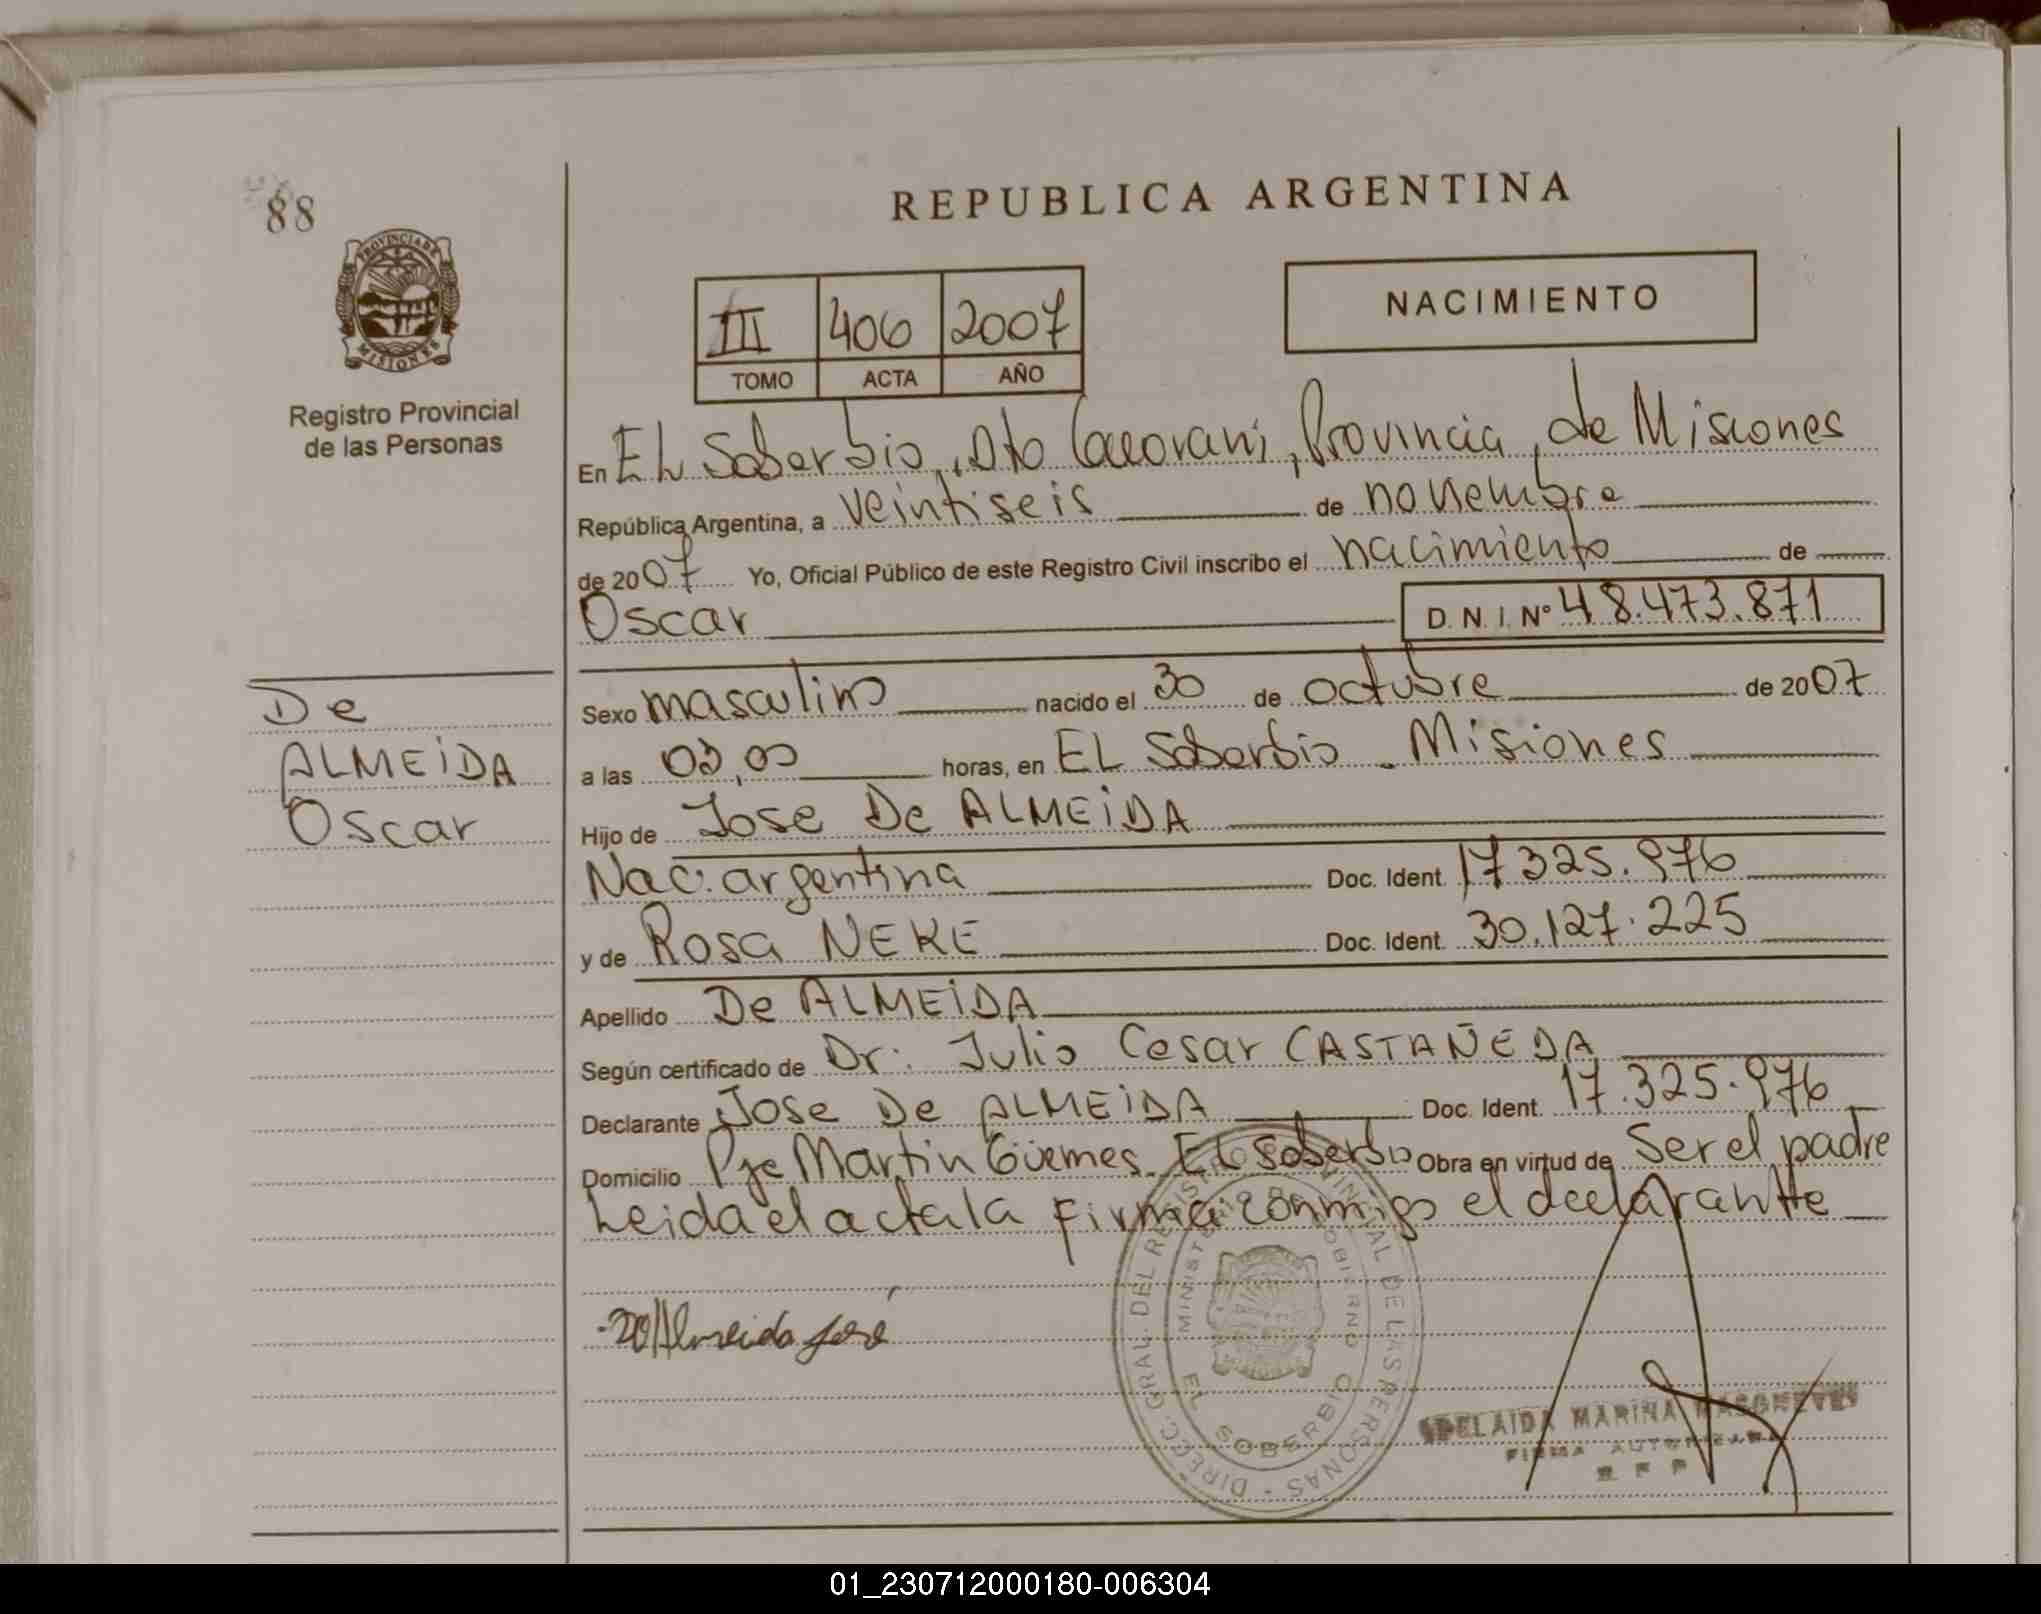 88
PROVINCIA DE
MISIONES
Registro Provincial
de las Personas
REPUBLICA ARGENTINA
III 406 2007
TOMO ACTA AÑO
NACIMIENTO
En El Soberbio, Dto Guaraní, Provincia de Misiones
República Argentina, a veintiseis de noviembre
de 2007 Yo, Oficial Público de este Registro Civil inscribo el nacimiento de
Oscar D. N. I. Nº 48.473.871
De
ALMEIDA
Oscar
Sexo masculino nacido el 30 de octubre de 2007
a las horas, en EL Soberbio - Misiones
Hijo de Jose De ALMEIDA
Nac. argentina Doc. Ident. 17325.976
y de Rosa NEKE Doc. Ident. 30.127.225
Apellido De ALMEIDA
Según certificado de Dr: Julio Cesar CASTAÑEDA
Declarante Jose De ALMEIDA Doc. Ident. 17.325.976
Domicilio Pje Martin Güemes - El Soberbio Obra en virtud de Ser el padre
Leida el acta la firma conmigo el declarante
Almeida José
DIRECC. GRAL. DEL REGISTRO PROVINCIAL DE LAS PERSONAS
MINISTERIO DE GOBIERNO
EL SOBERBIO
ADELAIDA MARINA
FIRMA AUTORIZADA
01_230712000180-006304